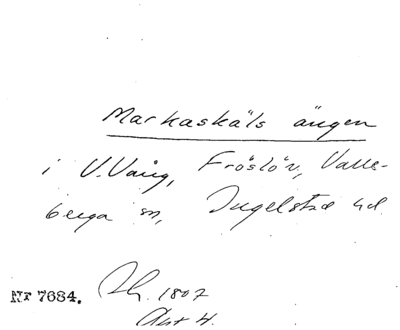 Markaskäls ängen
i V. Vång, Fröslöv, Valle-
berga sn, Ingelstad hd
NT 7684. 1807
Akt 4.